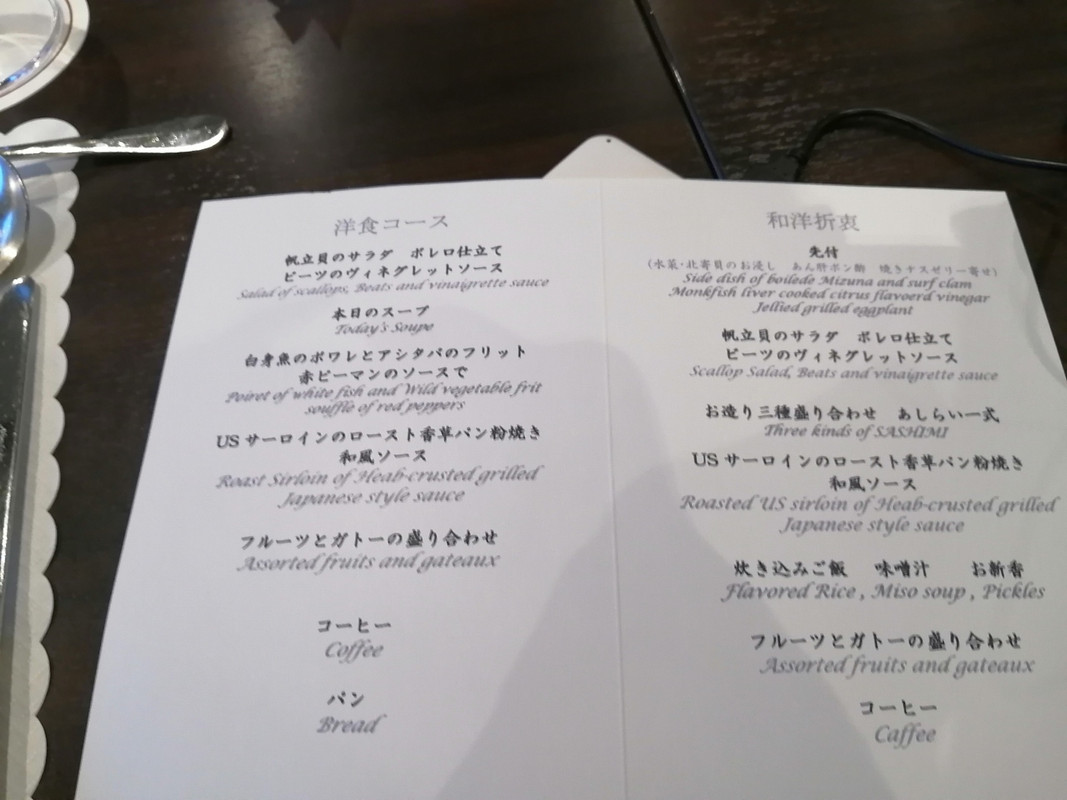 洋食コース
帆立貝のサラダ　ボレロ仕立て
ビーツのヴィネグレットソース
Salad of scallops, Beats and vinaigrette sauce
本日のスープ
Today's Soupe
白身魚のポワレとアシタバのフリット
赤ピーマンのソースで
Poiret of white fish and Wild vegetable frit
souffle of red peppers
USサーロインのロースト香草パン粉焼き
和風ソース
Roast Sirloin of Heab-crusted grilled
Japanese style sauce
フルーツとガトーの盛り合わせ
Assorted fruits and gateaux
コーヒー
Coffee
パン
Bread
和洋折衷
先付
(水菜・北寄貝のお浸し　あん肝ポン酢　焼きナスゼリー寄せ)
Side dish of boilede Mizuna and surf clam
Monkfish liver cooked citrus flavoerd vinegar
Jellied grilled eggplant
帆立貝のサラダ　ボレロ仕立て
ビーツのヴィネグレットソース
Scallop Salad, Beats and vinaigrette sauce
お造り三種盛り合わせ　あしらい一式
Three kinds of SASHIMI
USサーロインのロースト香草パン粉焼き
和風ソース
Roasted US sirloin of Heab-crusted grilled
Japanese style sauce
炊き込みご飯　味噌汁　お新香
Flavored Rice , Miso soup , Pickles
フルーツとガトーの盛り合わせ
Assorted fruits and gateaux
コーヒー
Caffee